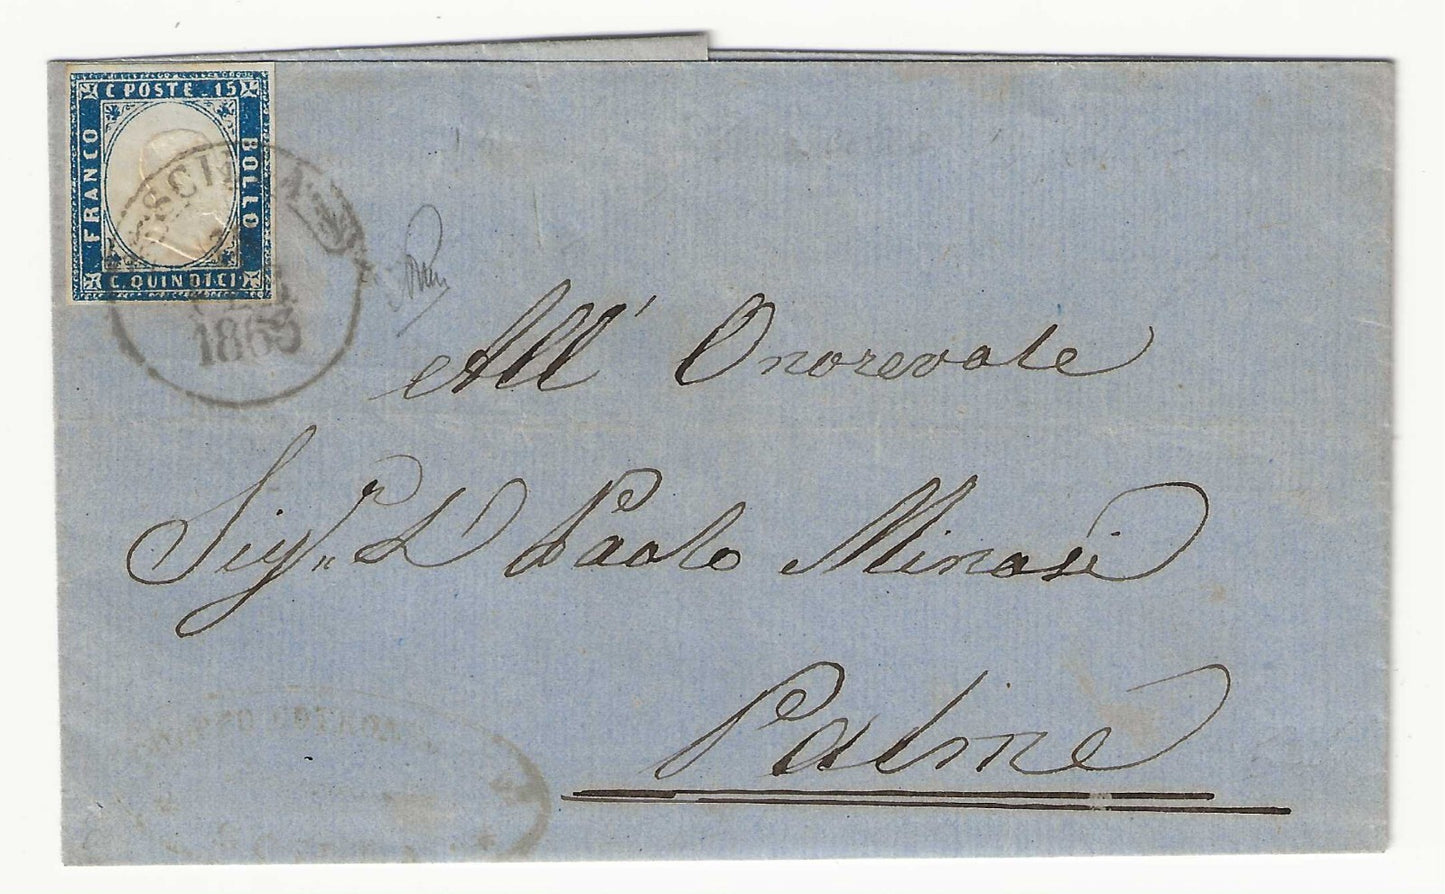 C POSTE . 15
FRANCO
BOLLO
C. QUINDICI
1863
All' Onorevole
Sig.r D Paolo Minasi
Palme